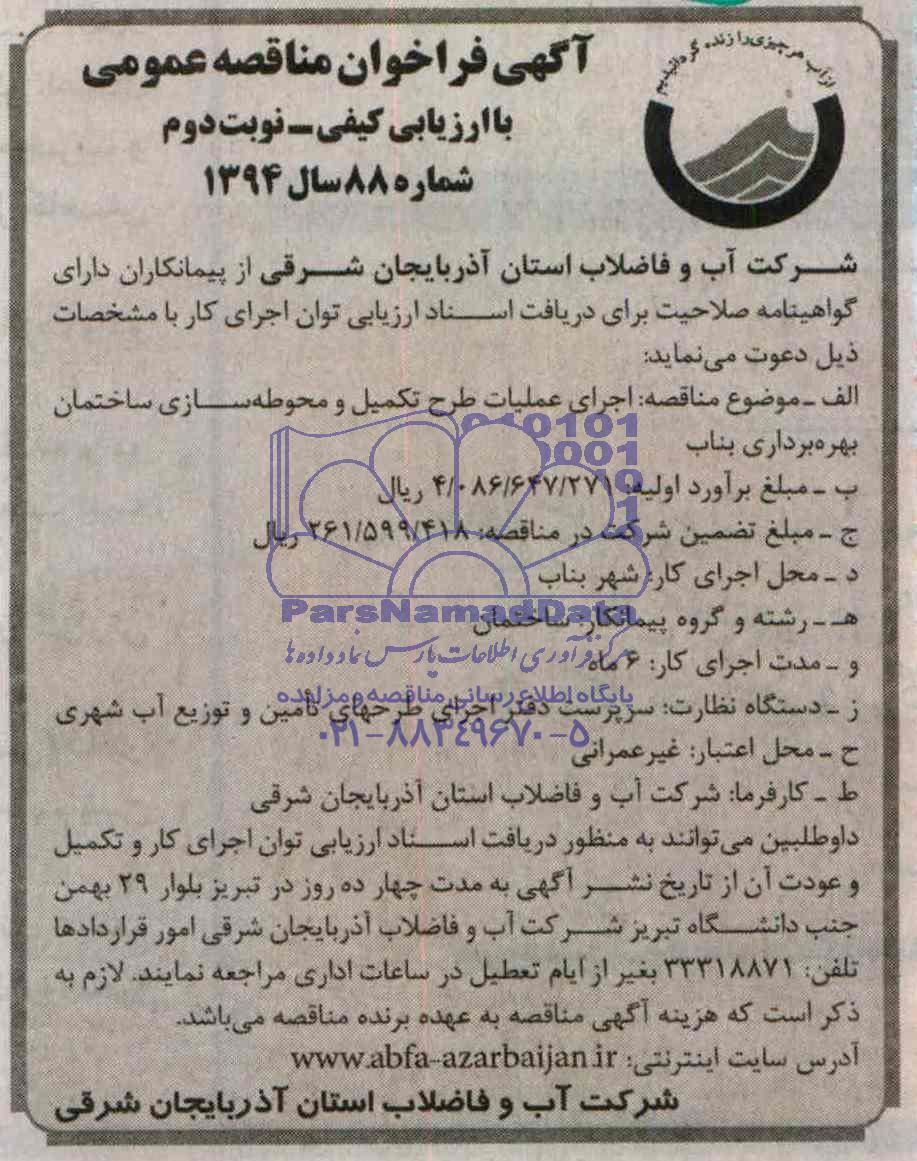 از آب هر چیزی را زنده گردانیدیم
آگهی فراخوان مناقصه عمومی
با ارزیابی کیفی ـ نوبت دوم
شماره ۸۸ سال ۱۳۹۴
شرکت آب و فاضلاب استان آذربایجان شرقی از پیمانکاران دارای
گواهینامه صلاحیت برای دریافت اسناد ارزیابی توان اجرای کار با مشخصات
ذیل دعوت می‌نماید:
الف ـ موضوع مناقصه: اجرای عملیات طرح تکمیل و محوطه‌سازی ساختمان
بهره‌برداری بناب
ب ـ مبلغ برآورد اولیه: ۴/۰۸۶/۶۴۷/۲۷۱ ریال
ج ـ مبلغ تضمین شرکت در مناقصه: ۲۶۱/۵۹۹/۴۱۸ ریال
د ـ محل اجرای کار: شهر بناب
هـ ـ رشته و گروه پیمانکار: ساختمان
و ـ مدت اجرای کار: ۶ ماه
ز ـ دستگاه نظارت: سرپرست دفتر اجرای طرحهای تأمین و توزیع آب شهری
ح ـ محل اعتبار: غیرعمرانی
ط ـ کارفرما: شرکت آب و فاضلاب استان آذربایجان شرقی
داوطلبین می‌توانند به منظور دریافت اسناد ارزیابی توان اجرای کار و تکمیل
و عودت آن از تاریخ نشر آگهی به مدت چهار ده روز در تبریز بلوار ۲۹ بهمن
جنب دانشگاه تبریز شرکت آب و فاضلاب آذربایجان شرقی امور قراردادها
تلفن: ۳۳۳۱۸۸۷۱ بغیر از ایام تعطیل در ساعات اداری مراجعه نمایند. لازم به
ذکر است که هزینه آگهی مناقصه به عهده برنده مناقصه می‌باشد.
آدرس سایت اینترنتی: www.abfa-azarbaijan.ir
شرکت آب و فاضلاب استان آذربایجان شرقی
010101
0001
ParsNamadData
مرکز فرآوری اطلاعات پارس نماد داده ها
پایگاه اطلاع رسانی مناقصه و مزایده
۰۲۱-۸۸۳۴۹۶۷۰-۵